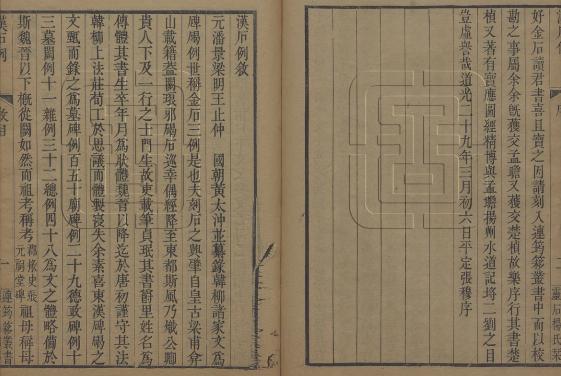 好金石讀君書喜且寶之因請刻入連筠簃叢書中而以校
勘之事屬余余旣獲交孟瞻又獲交楚楨故樂序行其書楚
楨又著有寶應圖經精博與孟瞻揚州水道記埒二劉之目
豈虛譽哉道光二十九年三月初六日平定張穆序
漢石例敘
元潘景梁明王止仲 國朝黃太沖並纂錄韓柳諸家文爲
碑碣例世稱金石三例是也夫刻石之興肇自皇古梁甫弇
山載籍盎闕琅邪碣石巡幸偶經降至東都斯風乃熾公卿
貴人下及一行之士門生故吏載筆貞珉其書爵里姓名爲
傳體其書生卒年月爲狀體魏晉以降迄於唐初謹守其法
韓柳上法莊荀工於思議而體製寖失余素喜東漢碑碣之
文甄而錄之爲墓碑例百五十廟碑例二十九德政碑例十
三墓闕例十一雜例三十二總例四十八爲文之體略備於
斯魏晉以下槪從闕如然而祖考稱考
祖母稱母
漢石例
敘目
一
連筠簃叢書